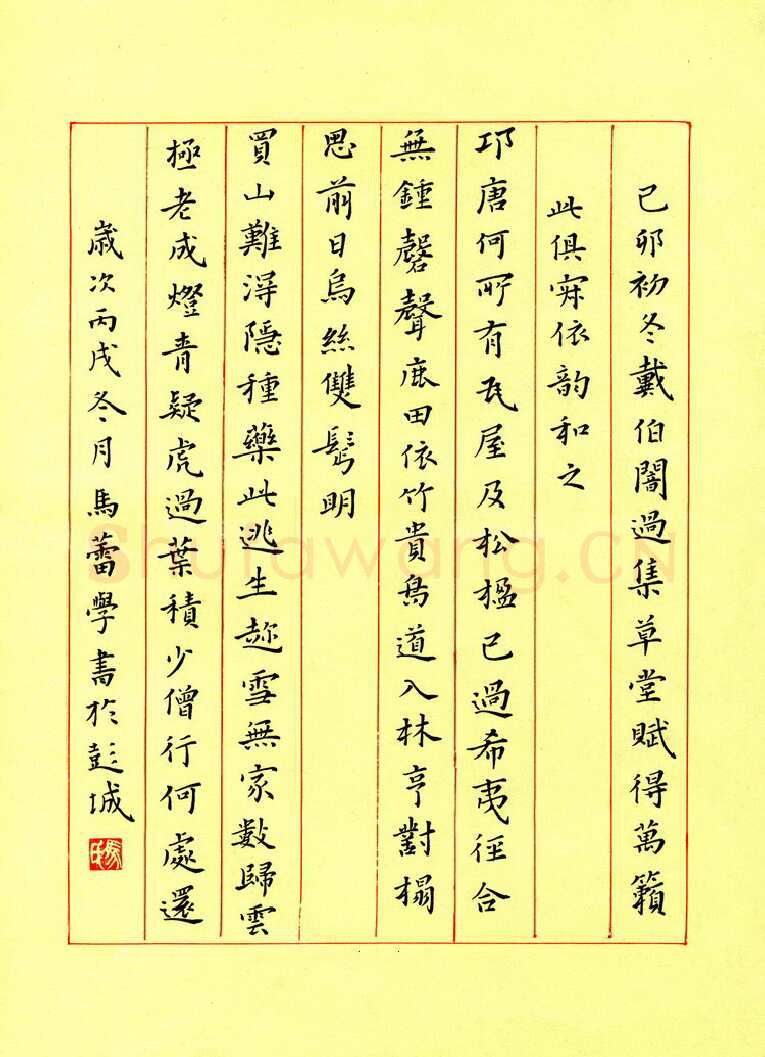 己卯初冬戴伯闇過集草堂賦得萬籟
此俱寂依韵和之
邛唐何所有瓦屋及松楹已過希夷徑合
無鍾磬聲鹿田依竹貴鳥道入林亨對榻
思前日烏絲雙鬢明
買山難淂隱種藥此逃生趂雪無家數歸雲
極老成燈青疑虎過葉積少僧行何處還
歲次丙戌冬月馬蕾學書於彭城
Shufawang.CN